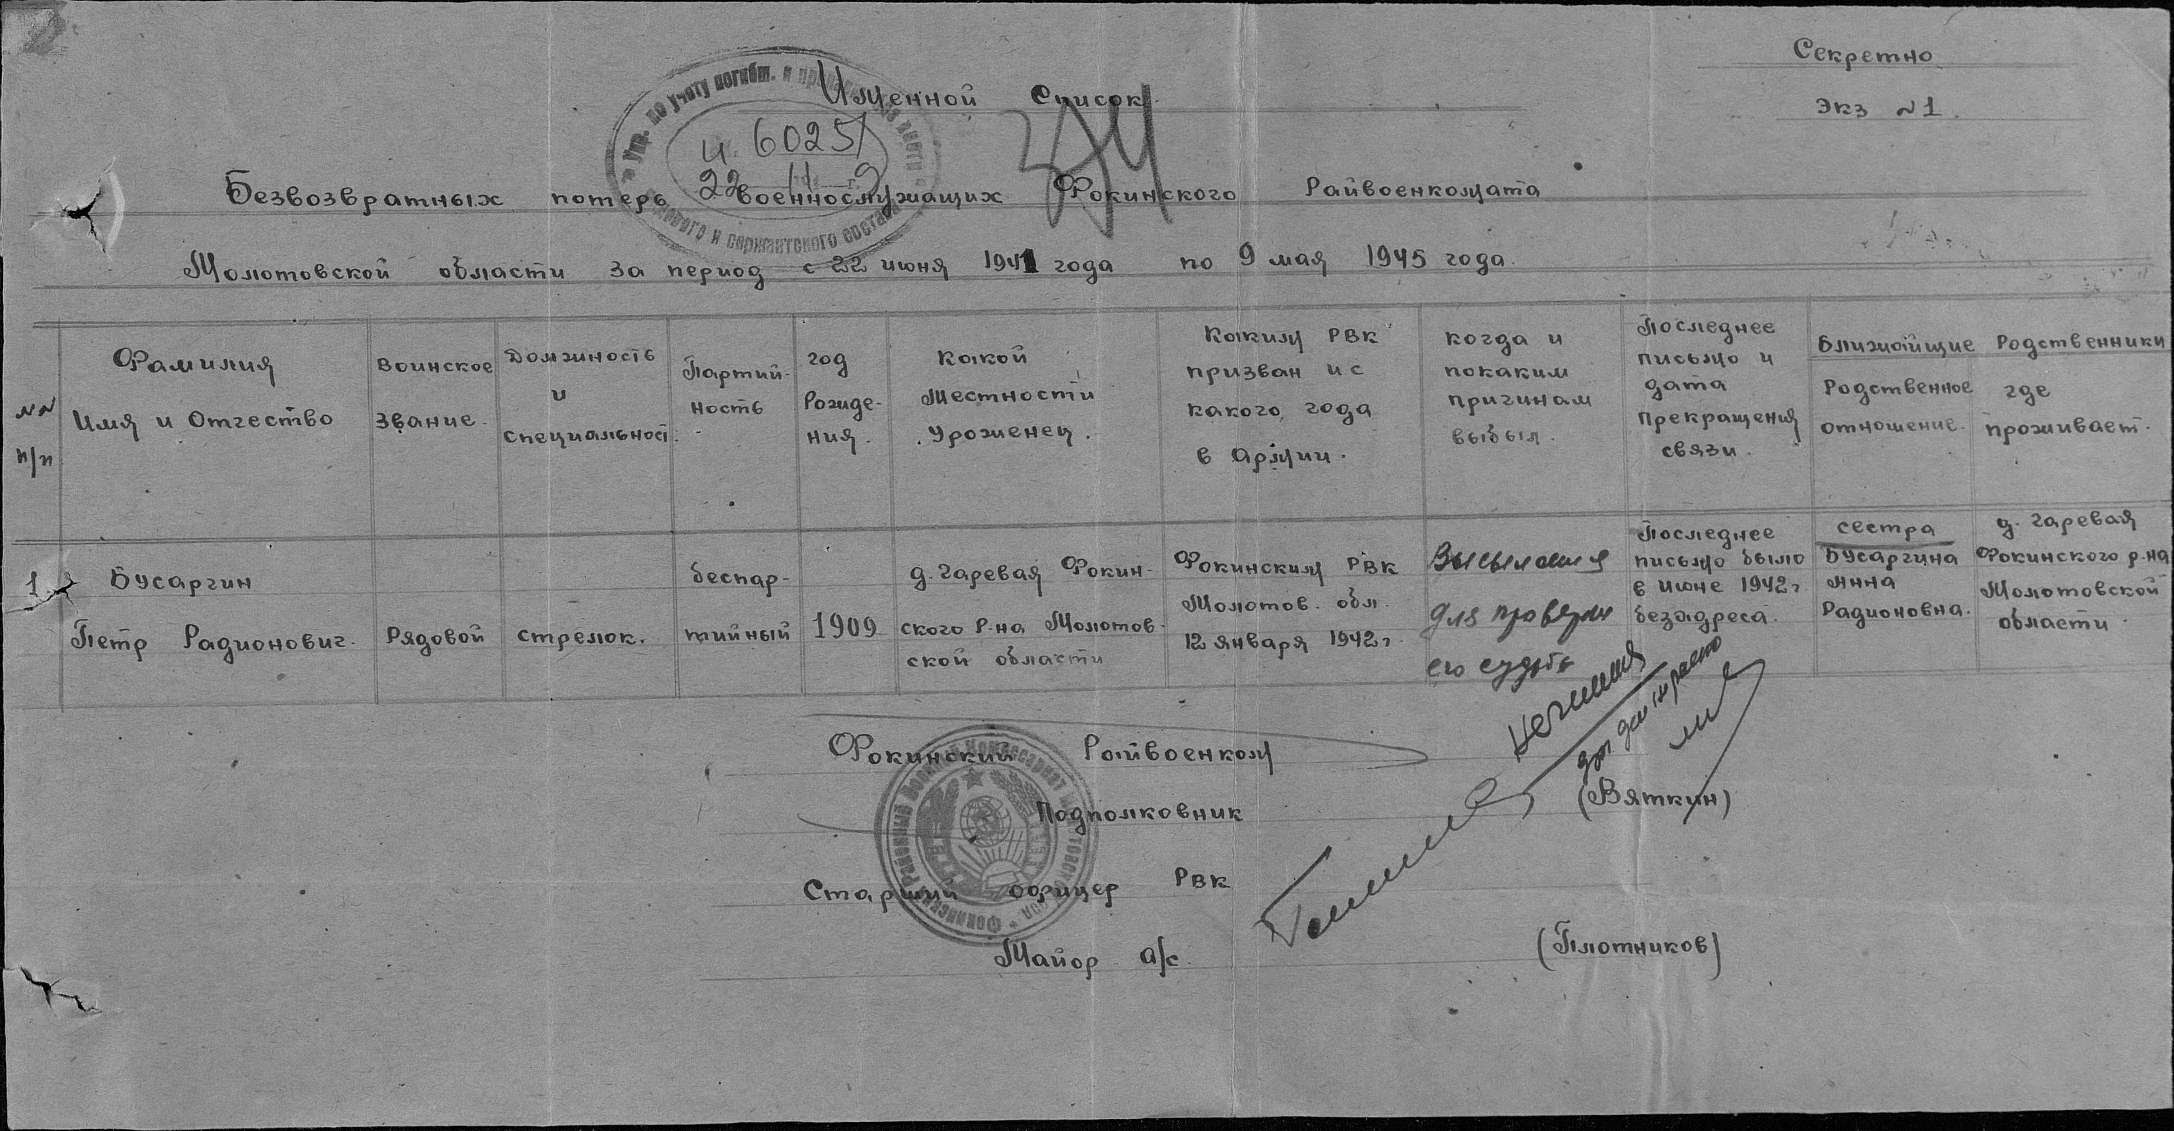 Секретно
Экз №1.
Именной Список
Упр. по учету погибш. и
и. 60251
22 11 9
рядового и сержантского состава
Безвозвратных потерь военнослужащих Фокинского Райвоенкомата
Молотовской области за период с 22 июня 1941 года по 9 мая 1945 года.
№№ п/п
Фамилия
Имя и Отчество
Воинское
звание.
Должность
и
специальност.
Партий-
ность
год
Рожде-
ния.
Какой
местности
уроженец.
Каким РВК
призван и с
какого года
в Армии.
когда и
покаким
причинам
выбыл.
Последнее
письмо и
дата
прекращения
связи.
Ближайщие Родственники
Родственное
отношение.
где
проживает.
1
Бусаргин
Петр Радионович.
Рядовой
стрелок.
беспар-
тийный
1909
д. Гаревая Фокин-
ского Р-на Молотов-
ской области
Фокинским РВК
Молотов. обл.
12 января 1942 г.
Высылался
для проверки
его судьбы
Последнее
письмо было
в июне 1942 г
безадреса.
сестра
Бусаргина
Анна
Радионовна.
д. Гаревая
Фокинского р-на
Молотовской
области.
Фокинский Райвоенком
Подполковник
(Вяткин)
Старший офицер РВК
Майор а/с
(Плотников)